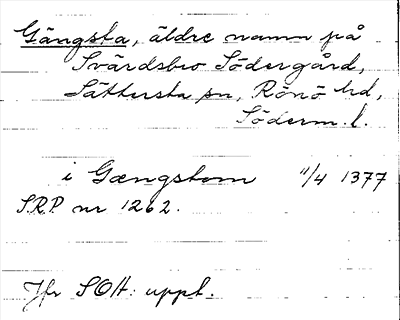 Gängsta, äldre namn på
Svärdsbro Södergård,
Sättersta sn, Rönö hd,
Söderm. l.
i Gængstom 11/4 1377
S.R.P. nr 1262.
Jfr SOH: uppl.